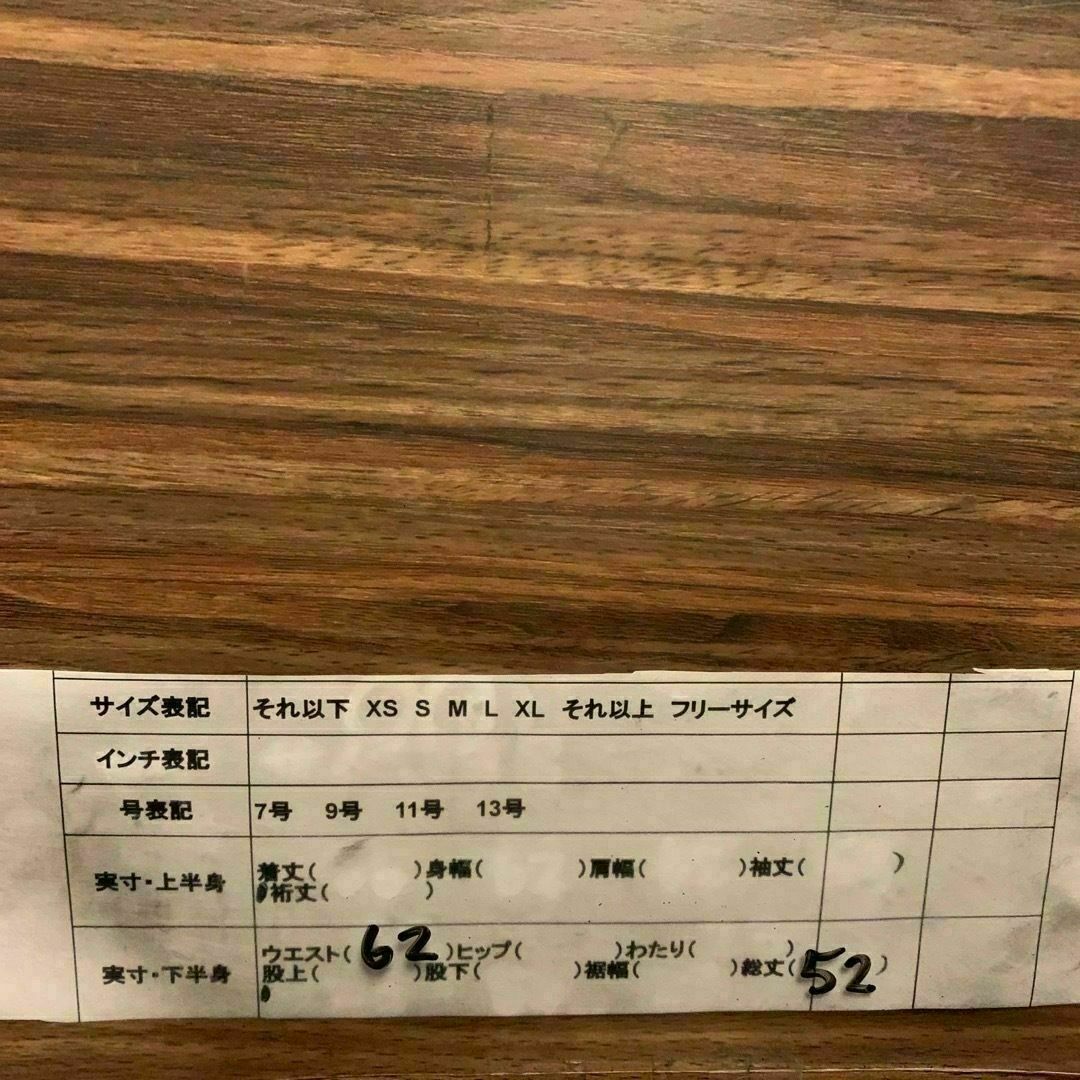 サイズ表記 それ以下 XS S M L XL それ以上 フリーサイズ
インチ表記
号表記 7号 9号 11号 13号
実寸・上半身 着丈( )身幅( )肩幅( )袖丈( )
裄丈( )
実寸・下半身 ウエスト( 62 )ヒップ( )わたり( )
股上( )股下( )裾幅( )総丈( 52 )